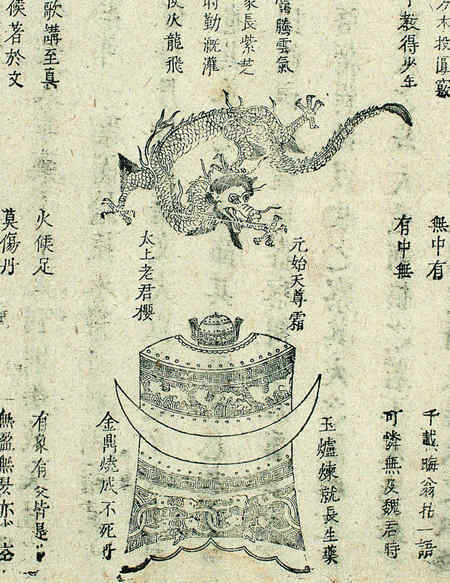 木投
教得少年
騰雲氣
家長紫芝
時勤溉灌
火龍飛
歌講至真
候者於文
無中有
有中無
元始天尊霜
太上老君櫻
火候足
莫傷丹
千載晦翁拈一語
可憐無及魏君時
玉爐煉就長生藥
金鼎燒成不死丹
有象有爻皆是
無盈無亦